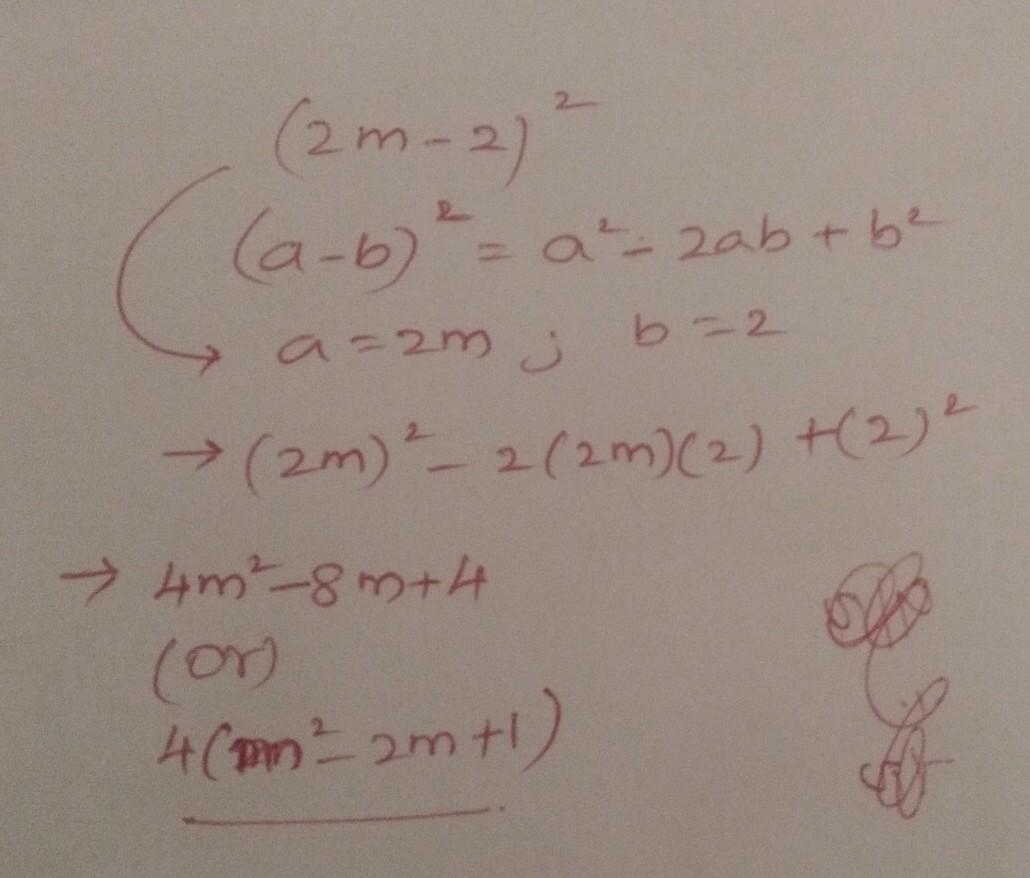 (2m-2)²
(a-b)² = a² - 2ab + b²
→ a = 2m ; b = 2
→ (2m)² - 2(2m)(2) + (2)²
→ 4m² - 8m + 4
(or)
4(m² - 2m + 1)